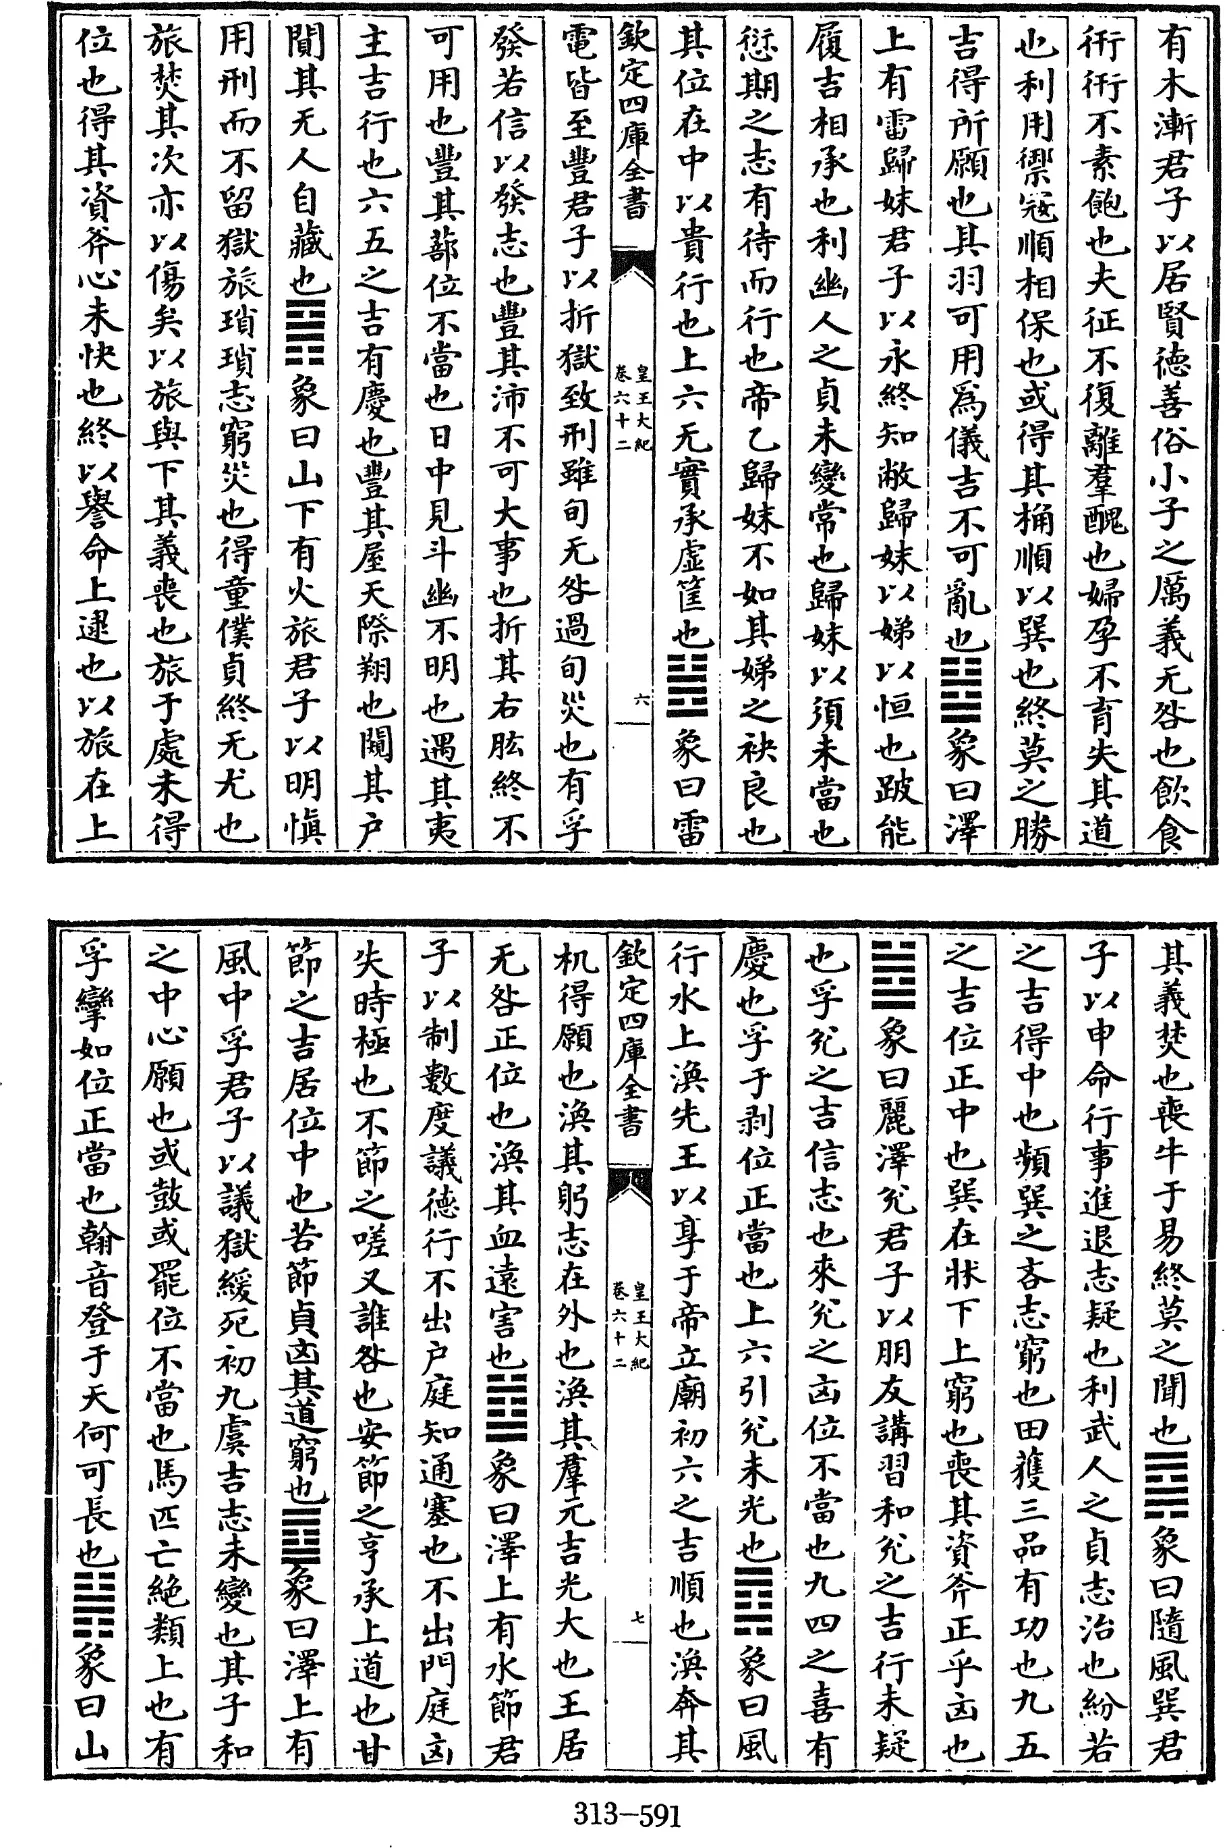 有木漸君子以居賢德善俗小子之厲義无咎也飲食
衎衎不素飽也夫征不復離羣醜也婦孕不育失其道
也利用禦寇順相保也或得其桷順以巽也終莫之勝
吉得所願也其羽可用為儀吉不可亂也䷵象曰澤
上有雷歸妹君子以永終知敝歸妹以娣以恒也跛能
履吉相承也利幽人之貞未變常也歸妹以須未當也
愆期之志有待而行也帝乙歸妹不如其娣之袂良也
其位在中以貴行也上六无實承虛筐也䷶象曰雷
欽定四庫全書
皇王大紀
卷六十二
六
電皆至豐君子以折獄致刑雖旬无咎過旬災也有孚
發若信以發志也豐其沛不可大事也折其右肱終不
可用也豐其蔀位不當也日中見斗幽不明也遇其夷
主吉行也六五之吉有慶也豐其屋天際翔也闚其户
闃其无人自藏也䷷象曰山下有火旅君子以明慎
用刑而不留獄旅瑣瑣志窮災也得童僕貞終无尤也
旅焚其次亦以傷矣以旅與下其義喪也旅于處未得
位也得其資斧心未快也終以譽命上逮也以旅在上
其義焚也喪牛于易終莫之聞也䷸象曰隨風巽君
子以申命行事進退志疑也利武人之貞志治也紛若
之吉得中也頻巽之吝志窮也田獲三品有功也九五
之吉位正中也巽在牀下上窮也喪其資斧正乎凶也
䷹象曰麗澤兌君子以朋友講習和兌之吉行未疑
也孚兌之吉信志也來兌之凶位不當也九四之喜有
慶也孚于剥位正當也上六引兌未光也䷺象曰風
行水上渙先王以享于帝立廟初六之吉順也渙奔其
欽定四庫全書
皇王大紀
卷六十二
七
机得願也渙其躬志在外也渙其羣元吉光大也王居
无咎正位也渙其血遠害也䷻象曰澤上有水節君
子以制數度議德行不出户庭知通塞也不出門庭凶
失時極也不節之嗟又誰咎也安節之亨承上道也甘
節之吉居位中也苦節貞凶其道窮也䷼象曰澤上有
風中孚君子以議獄緩死初九虞吉志未變也其子和
之中心願也或鼓或罷位不當也馬匹亡絶類上也有
孚攣如位正當也翰音登于天何可長也䷽象曰山
313-591